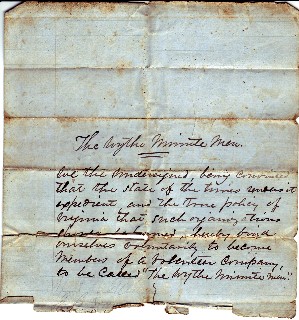 The Wythe Minute Men.
We the Undersigned, being convinced
that the state of the times renders it
expedient and the true policy of
Virginia that such organizations
should be formed, hereby bind
ourselves voluntarily to become
Members of a Volunteer Company,
to be Called "The Wythe Minute Men."